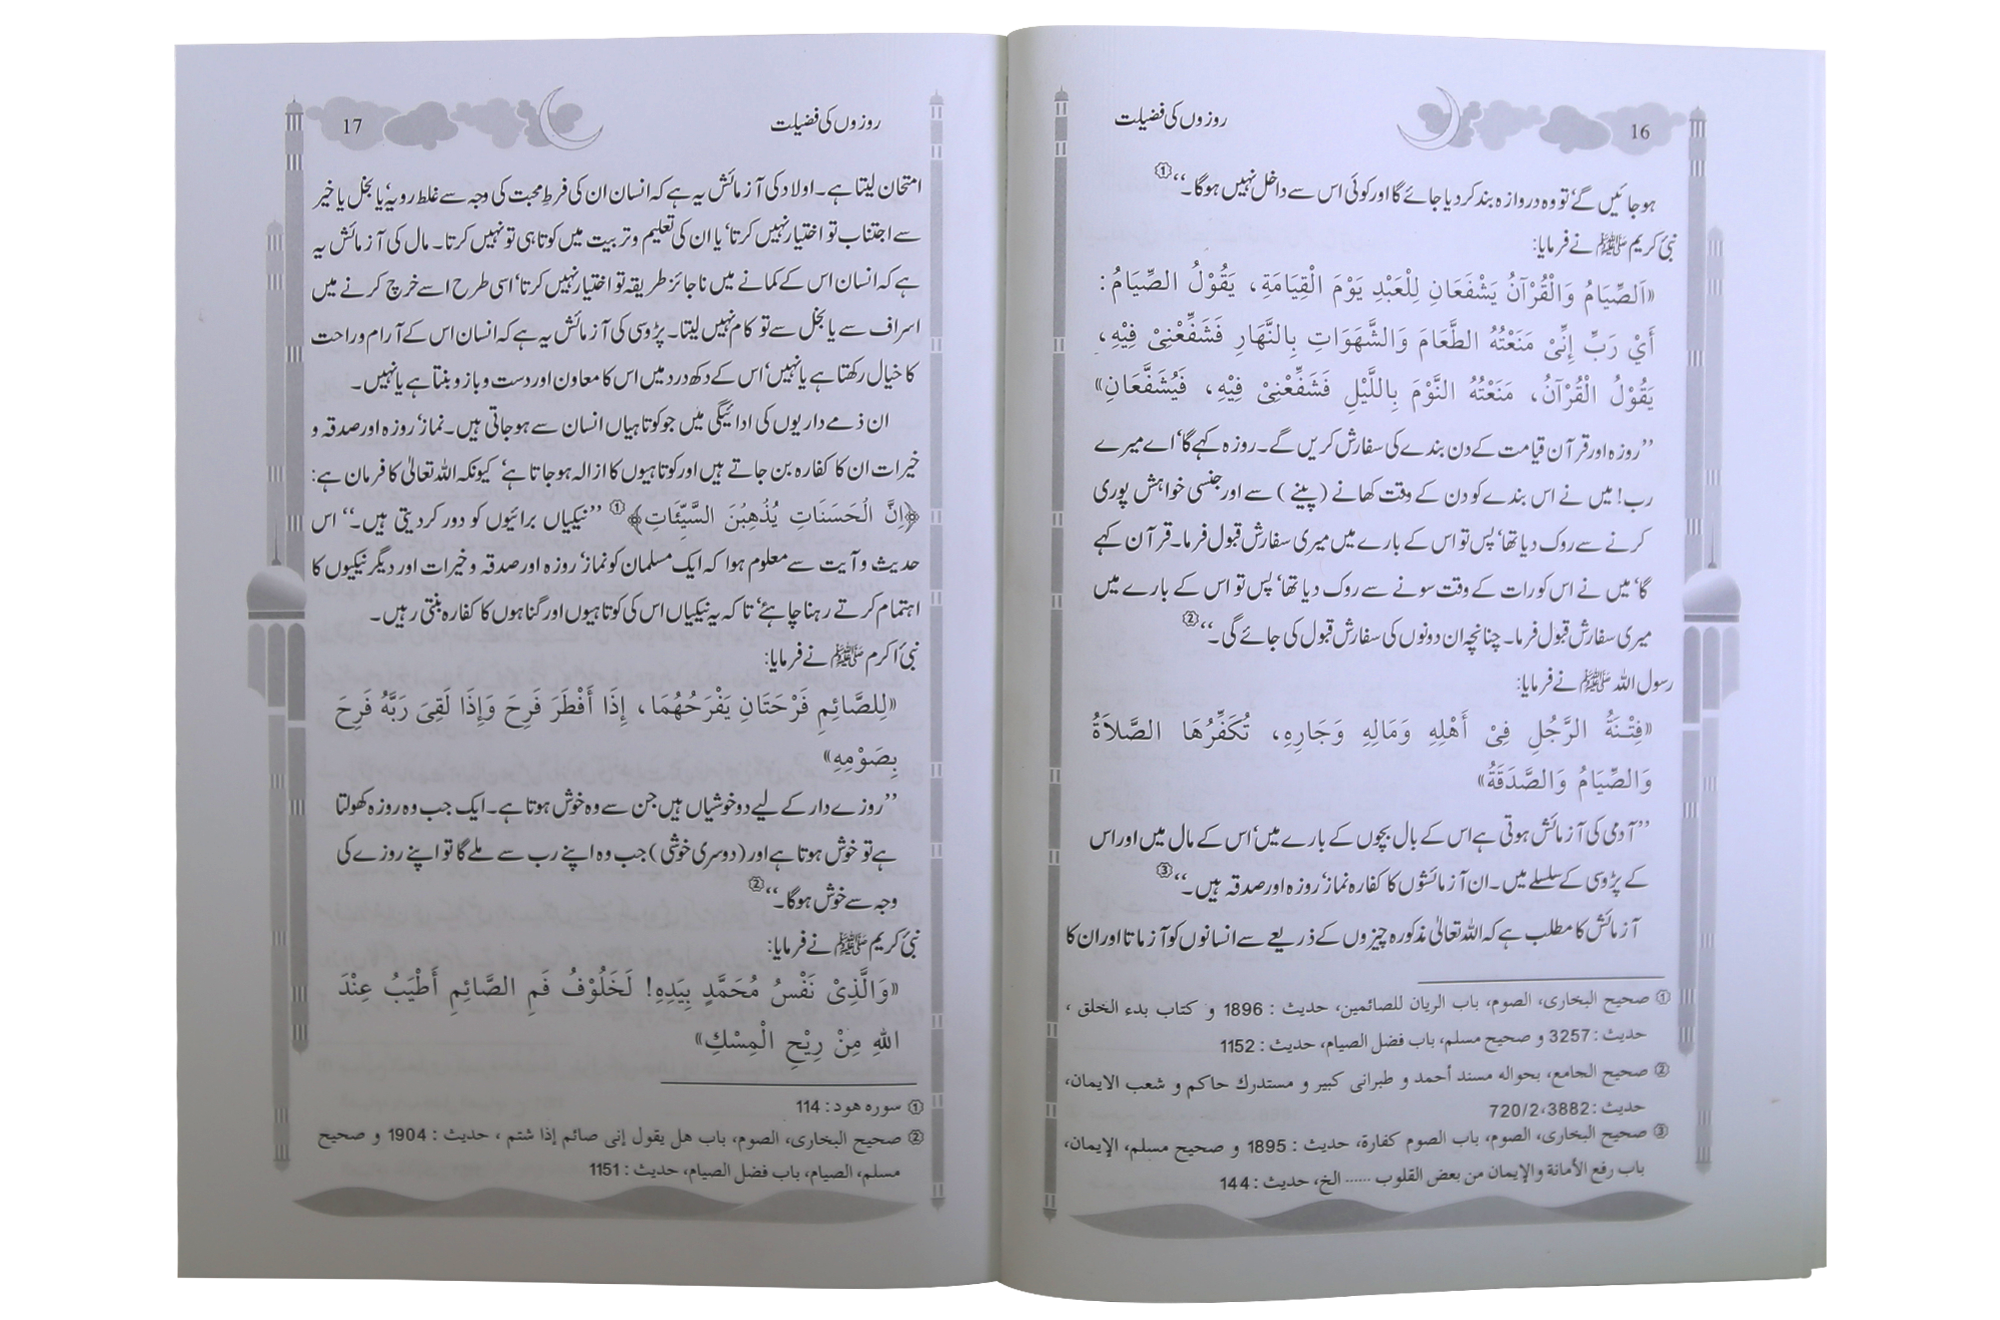 روزوں کی فضیلت 16
ہو جائیں گے‘ تو وہ دروازہ بند کر دیا جائے گا اور کوئی اس سے داخل نہیں ہوگا۔‘‘①
نبیٔ کریم ﷺ نے فرمایا:
«اَلصِّيَامُ وَالْقُرْآنُ يَشْفَعَانِ لِلْعَبْدِ يَوْمَ الْقِيَامَةِ، يَقُوْلُ الصِّيَامُ:
أَيْ رَبِّ إِنِّىْ مَنَعْتُهُ الطَّعَامَ وَالشَّهَوَاتِ بِالنَّهَارِ فَشَفِّعْنِىْ فِيْهِ،
يَقُوْلُ الْقُرْآنُ، مَنَعْتُهُ النَّوْمَ بِاللَّيْلِ فَشَفِّعْنِىْ فِيْهِ، فَيُشَفَّعَانِ»
’’روزہ اور قرآن قیامت کے دن بندے کی سفارش کریں گے۔ روزہ کہے گا‘ اے میرے
رب! میں نے اس بندے کو دن کے وقت کھانے (پینے) سے اور جنسی خواہش پوری
کرنے سے روک دیا تھا‘ پس تو اس کے بارے میں میری سفارش قبول فرما۔ قرآن کہے
گا‘ میں نے اس کو رات کے وقت سونے سے روک دیا تھا‘ پس تو اس کے بارے میں
میری سفارش قبول فرما۔ چنانچہ ان دونوں کی سفارش قبول کی جائے گی۔‘‘②
رسول اللہ ﷺ نے فرمایا:
«فِتْنَةُ الرَّجُلِ فِىْ أَهْلِهِ وَمَالِهِ وَجَارِهِ، تُكَفِّرُهَا الصَّلاَةُ
وَالصِّيَامُ وَالصَّدَقَةُ»
’’آدمی کی آزمائش ہوتی ہے اس کے بال بچوں کے بارے میں‘ اس کے مال میں اور اس
کے پڑوسی کے سلسلے میں۔ ان آزمائشوں کا کفارہ نماز‘ روزہ اور صدقہ ہیں۔‘‘③
آزمائش کا مطلب ہے کہ اللہ تعالیٰ مذکورہ چیزوں کے ذریعے سے انسانوں کو آزماتا اور ان کا
① صحيح البخارى، الصوم، باب الريان للصائمين، حديث : 1896 و كتاب بدء الخلق ،
حديث : 3257 و صحيح مسلم، باب فضل الصيام، حديث : 1152
② صحيح الجامع، بحواله مسند أحمد و طبرانى كبير و مستدرك حاكم و شعب الايمان،
حديث : 3882، 720/2
③ صحيح البخارى، الصوم، باب الصوم كفارة، حديث : 1895 و صحيح مسلم، الإيمان،
باب رفع الأمانة والإيمان من بعض القلوب ...... الخ، حديث : 144
روزوں کی فضیلت 17
امتحان لیتا ہے۔ اولاد کی آزمائش یہ ہے کہ انسان ان کی فرطِ محبت کی وجہ سے غلط رویہ‘ یا بخل یا خیر
سے اجتناب تو اختیار نہیں کرتا‘ یا ان کی تعلیم و تربیت میں کوتاہی تو نہیں کرتا۔ مال کی آزمائش یہ
ہے کہ انسان اس کے کمانے میں ناجائز طریقہ تو اختیار نہیں کرتا‘ اسی طرح اسے خرچ کرنے میں
اسراف سے یا بخل سے تو کام نہیں لیتا۔ پڑوسی کی آزمائش یہ ہے کہ انسان اس کے آرام و راحت
کا خیال رکھتا ہے یا نہیں‘ اس کے دکھ درد میں اس کا معاون اور دست و بازو بنتا ہے یا نہیں۔
ان ذمے داریوں کی ادائیگی میں جو کوتاہیاں انسان سے ہو جاتی ہیں۔ نماز‘ روزہ اور صدقہ و
خیرات ان کا کفارہ بن جاتے ہیں اور کوتاہیوں کا ازالہ ہو جاتا ہے‘ کیونکہ اللہ تعالیٰ کا فرمان ہے:
﴿اِنَّ الْحَسَنَاتِ يُذْهِبْنَ السَّيِّئَاتِ﴾① ’’نیکیاں برائیوں کو دور کر دیتی ہیں۔‘‘ اس
حدیث و آیت سے معلوم ہوا کہ ایک مسلمان کو نماز‘ روزہ اور صدقہ و خیرات اور دیگر نیکیوں کا
اہتمام کرتے رہنا چاہیے‘ تاکہ یہ نیکیاں اس کی کوتاہیوں اور گناہوں کا کفارہ بنتی رہیں۔
نبیٔ اکرم ﷺ نے فرمایا:
«لِلصَّائِمِ فَرْحَتَانِ يَفْرَحُهُمَا، إِذَا أَفْطَرَ فَرِحَ وَإِذَا لَقِىَ رَبَّهُ فَرِحَ
بِصَوْمِهِ»
’’روزے دار کے لیے دو خوشیاں ہیں جن سے وہ خوش ہوتا ہے۔ ایک جب وہ روزہ کھولتا
ہے تو خوش ہوتا ہے اور (دوسری خوشی) جب وہ اپنے رب سے ملے گا تو اپنے روزے کی
وجہ سے خوش ہوگا۔‘‘②
نبیٔ کریم ﷺ نے فرمایا:
«وَالَّذِىْ نَفْسُ مُحَمَّدٍ بِيَدِهِ! لَخَلُوْفُ فَمِ الصَّائِمِ أَطْيَبُ عِنْدَ
اللهِ مِنْ رِيْحِ الْمِسْكِ»
① سوره هود : 114
② صحيح البخارى، الصوم، باب هل يقول إنى صائم إذا شتم ، حديث : 1904 و صحيح
مسلم، الصيام، باب فضل الصيام، حديث : 1151